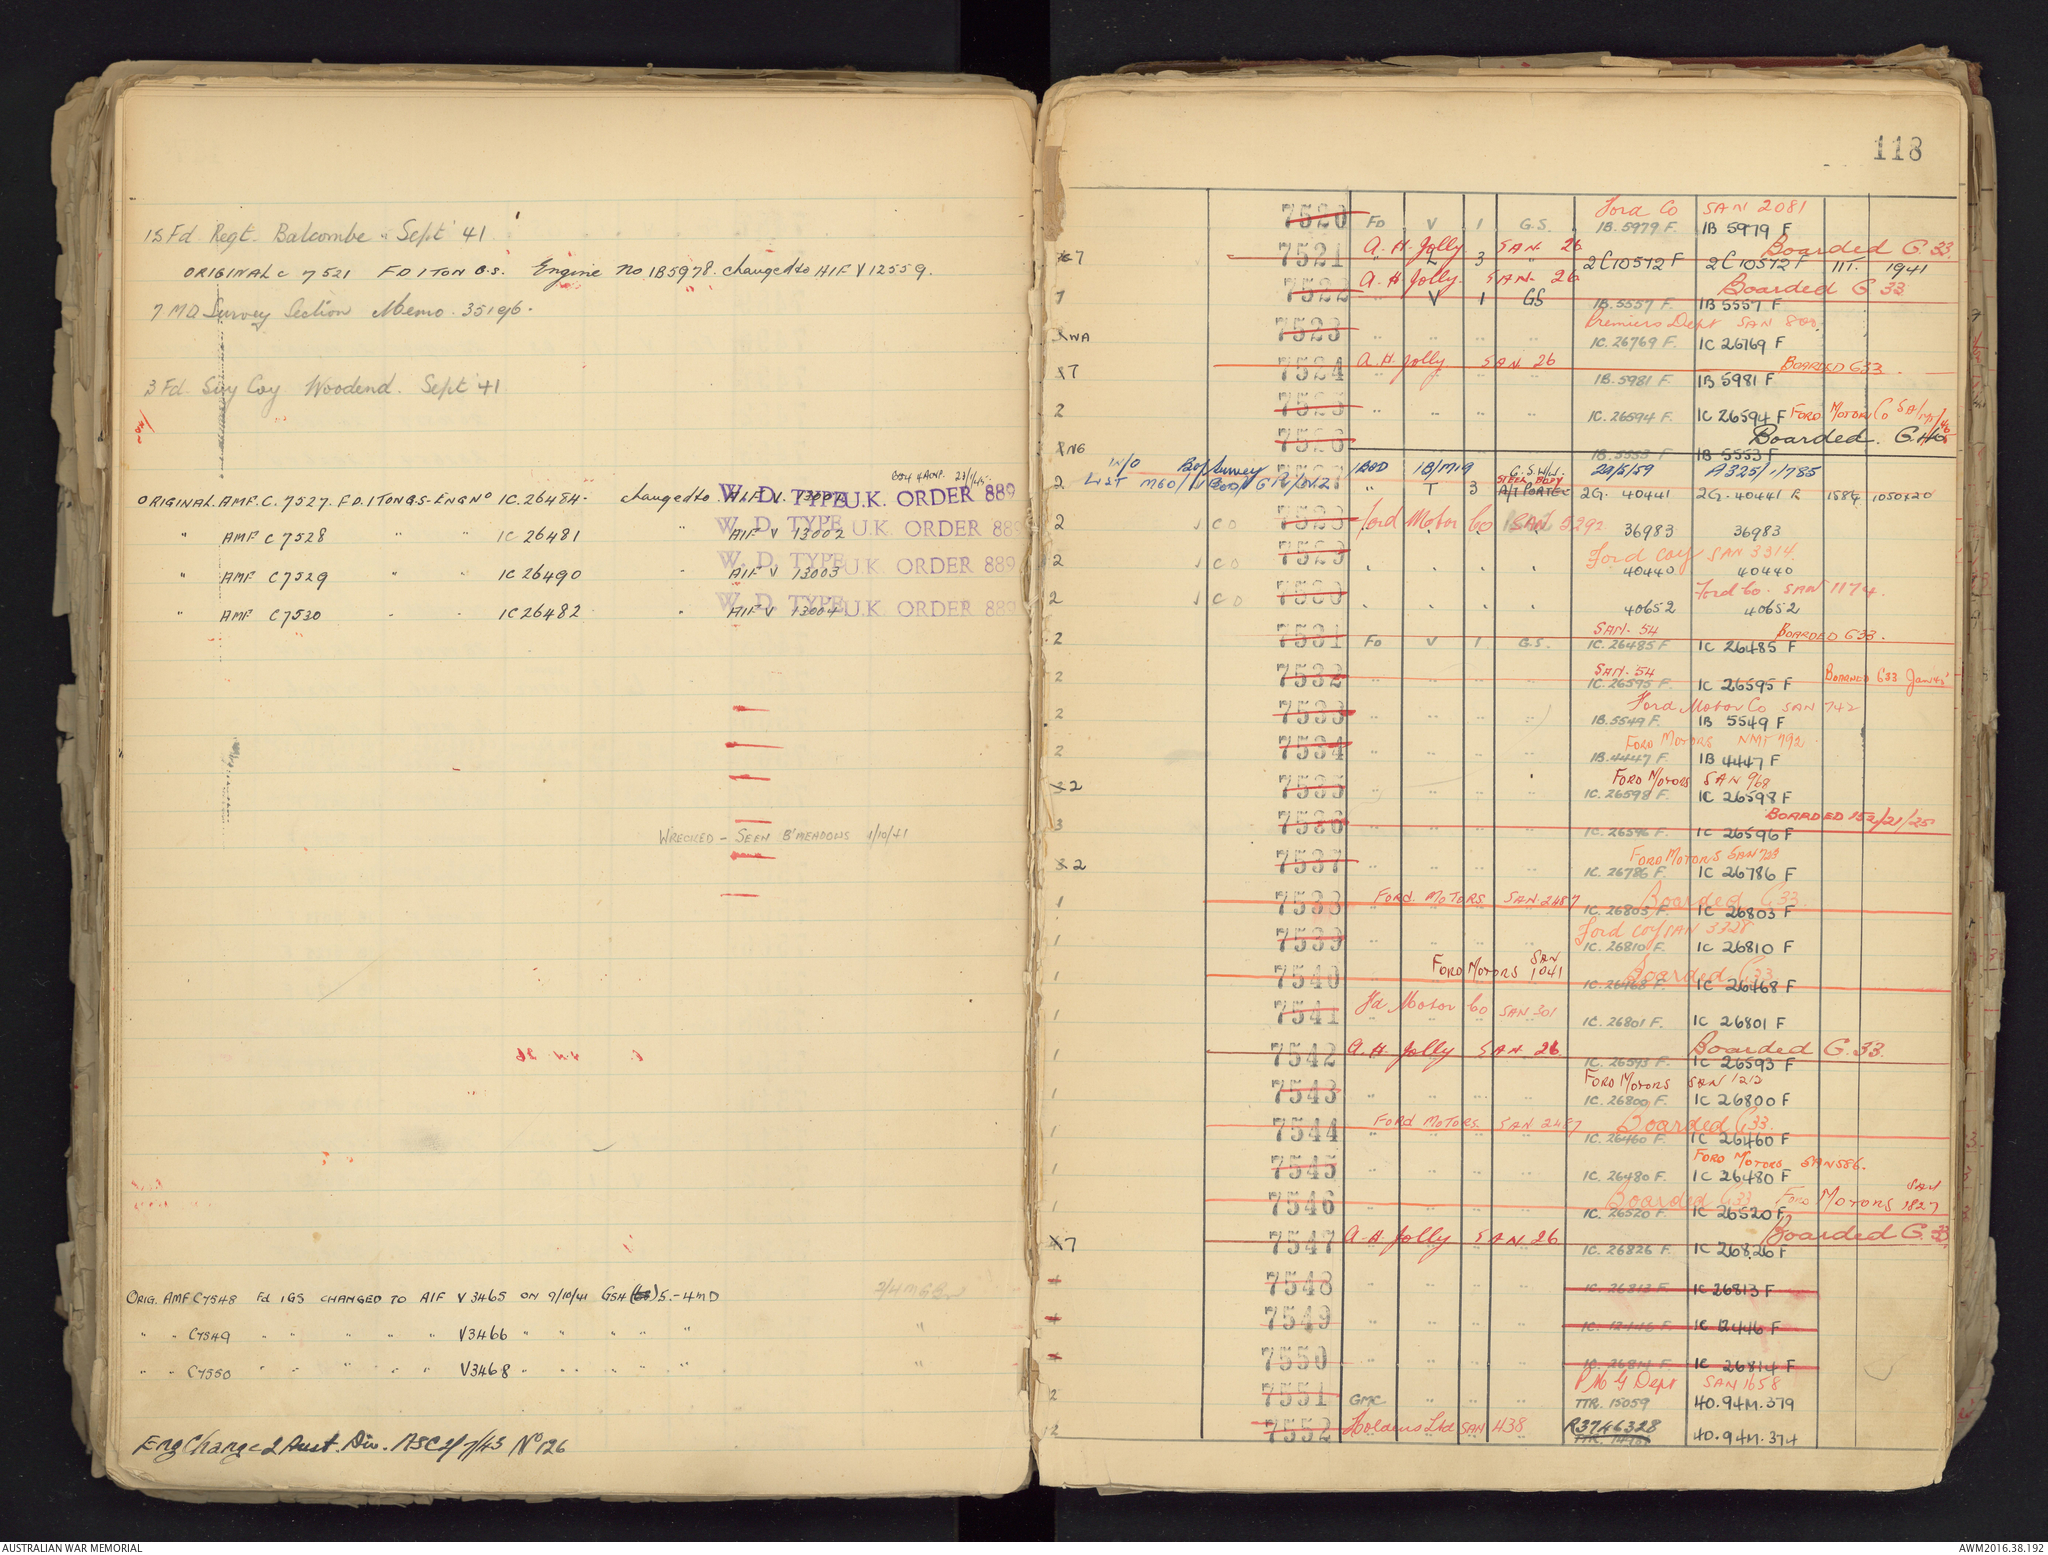 15 Fd Regt. Balcombe . Sept 41
ORIGINAL C 7521 FD 1 TON G.S. Engine No. 1B5978. changed to AIF V12559.
7 MD Survey Section Memo. 35196.
3 Fd Svy Coy Woodend. Sept 41
ORIGINAL. AMF. C. 7527. F.D. 1 TON G.S- ENG Nº 1C. 26484- changed to. AIF V. W. D. TYPE U.K. ORDER 889
" AMF C 7528 " " 1C 26481 " AIF V 13002 W. D. TYPE U.K. ORDER 889
" AMF C7529 " " 1C 26490 AIF V 13003 W. D. TYPE U.K. ORDER 889
" AMF C7530 " " 1C26482 " AIF V 13004 W. D. TYPE U.K. ORDER 889
WRECKED - SEEN B'MEADOWS 1/10/41
ORIG. AMF C7548 Fd 1GS CHANGED TO AIF V3465 ON 9/10/41 GSH 5.-4MD
" " C7549 " " " " " V3466 " " " " "
" " C7550 " " " " " V3468 " " " " "
Eng Changed 2 Aust. Div. ASC 2/7/43 Nº 126
118
Ford Co SAN 2081
7520 FD V 1 G.S. 1B. 5979 F. 1B 5979 F
A. H. Jolly SAN 26 Boarded G.33.
7 7521 " L 3 " 2C10572F 2C10572F III. 1941
A. H Jolly. SAN. 26 Boarded G 33
7 7522 V 1 GS 1B.5557 F. 1B 5557 F
Premiers Dept SAN 800
WA 7523 1C. 26769 F. 1C 26769 F
A. H. Jolly SAN 26 BOARDED G33.
7 7524 1B. 5981 F. 1B 5981 F
2 7525 1C. 26594 F. 1C 26594 F FORD MOTOR Co
NG 7526 Boarded. G.
1B. 5553 F 1B 5553 F
W/O Bos/Survey 1BOD 1B/M19 G.S.W/W. 29/5/59 A325/1/785
2 7527 " T 3 STEEL BODY 2G. 40441 2G. 40441 R 1584 1050x20
2 CD 7528 Ford Motor Co SAN 5292
36983 36983
Ford Coy SAN 3314
2 CD 7529 40440 40440
Ford Co. SAN 1174.
2 CD 7530 40652 40652
SAN. 54 BOARDED G33.
2 7531 FD V 1 G.S. 1C. 26485 F 1C 26485 F
SAN. 54 BOARDED G33 Jan 45
2 7532 1C. 26595 F. 1C 26595 F
Ford Motor Co SAN 742
2 7533 1B. 5549 F. 1B 5549 F
FORD MOTORS NMT 792
2 7534 1B. 4447 F. 1B 4447 F
FORD MOTORS SAN 968
2 7535 1C. 26598 F. 1C 26598 F
BOARDED 152/21/25
3 7536 1C. 26596 F 1C 26596 F
FORD MOTORS SAN 733
2 7537 1C. 26786 F. 1C 26786 F
FORD. MOTORS SAN. 2487 Boarded G33.
1 7538 1C. 26803 F. 1C 26803 F
Ford Coy SAN 3328
1 7539 1C. 26810 F. 1C 26810 F
FORD MOTORS SAN 1041 Boarded G33
1 7540 1C. 26468 F. 1C 26468 F
Fd Motor Co SAN 301
1 7541 1C. 26801 F. 1C 26801 F
1 7542 A. H. Jolly SAN 26 Boarded G. 33.
1C. 26593 F 1C 26593 F
FORD MOTORS SAN 1212
1 7543 1C. 26800 F. 1C 26800 F
FORD MOTORS. SAN 2487 Boarded G33.
1 7544 1C. 26460 F. 1C 26460 F
FORD MOTORS SAN 586.
1 7545 1C. 26480 F. 1C 26480 F
Boarded G33 FORD MOTORS SAN 1827
1 7546 1C. 26520 F. 1C 26520 F
7 7547 A. H. Jolly SAN 26 Boarded G. 33.
1C. 26826 F. 1C 26826 F
7548 1C. 26813 F. 1C 26813 F
7549 1C. 12446 F. 1C 12446 F
7550 1C. 26814 F. 1C 26814 F
P M G Dept SAN 1658
2 7551 GMC TTR. 15059 40.94M.379
2 7552 Holdens Ltd SAN 438 R3746328
40.94M.374
AUSTRALIAN WAR MEMORIAL
AWM2016.38.192